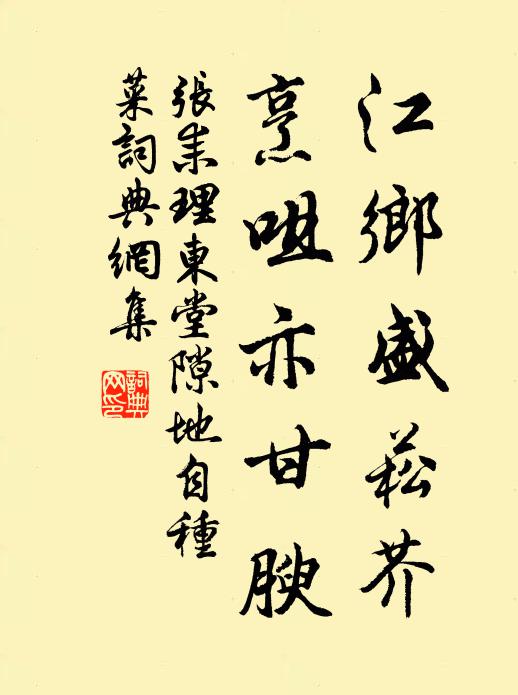 江鄉盛菘芥
烹咀亦甘腴
張耒理東堂隙地自種
菜詞典網集
詞典
网印